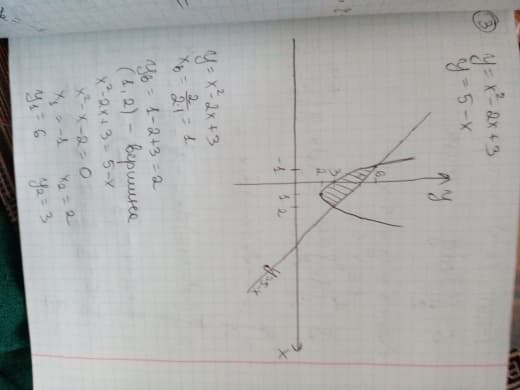 3 y = x² - 2x + 3
y = 5 - x
y
6
3
2
-1 1 2
x
y=5-x
y = x² - 2x + 3
x_в = 2/2·1 = 1
y_в = 1 - 2 + 3 = 2
(1, 2) - вершина
x² - 2x + 3 = 5 - x
x² - x - 2 = 0
x₁ = -1 x₂ = 2
y₁ = 6 y₂ = 3